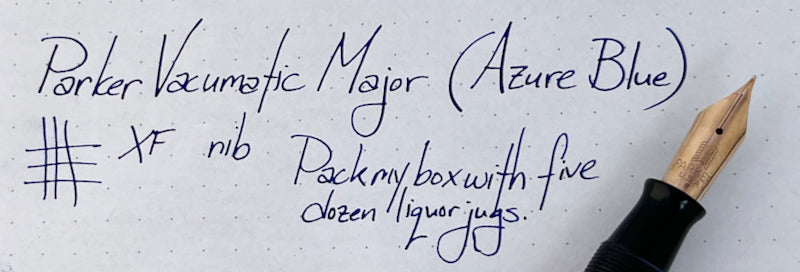 Parker Vacumatic Major (Azure Blue)
XF nib
Pack my box with five
dozen liquor jugs.